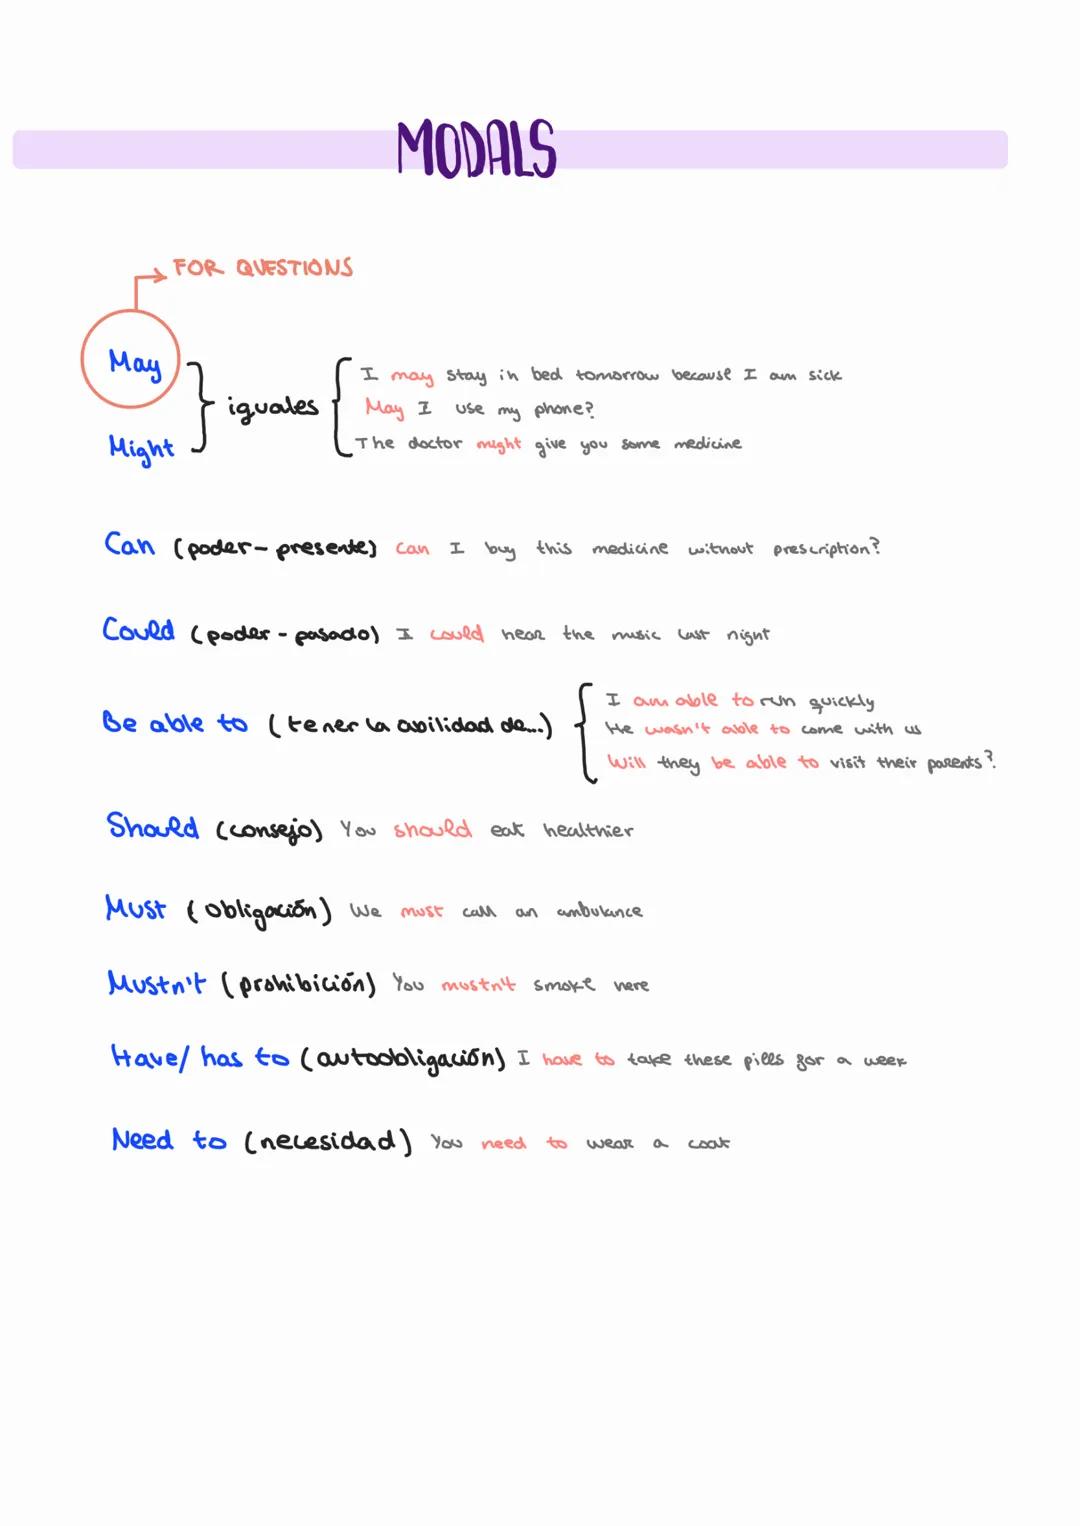 MODALS
FOR QUESTIONS
May
Might
iguales
I may stay in bed tomorrow because I am sick
May I use my phone?
The doctor might give you some medicine
Can (poder - presente) Can I buy this medicine without prescription?
Could (poder - pasado) I could hear the music last night
Be able to (tener la abilidad de...)
I am able to run quickly
He wasn't able to come with us
Will they be able to visit their parents?
Should (consejo) You should eat healthier
Must (obligación) We must call an ambulance
Mustn't (prohibición) You mustn't smoke here
Have/ has to (autoobligación) I have to take these pills for a week
Need to (necesidad) You need to wear a coat